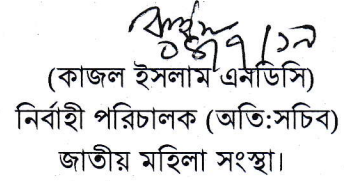 (কাজল ইসলাম এনডিসি)
নির্বাহী পরিচালক (অতি:সচিব)
জাতীয় মহিলা সংস্থা।